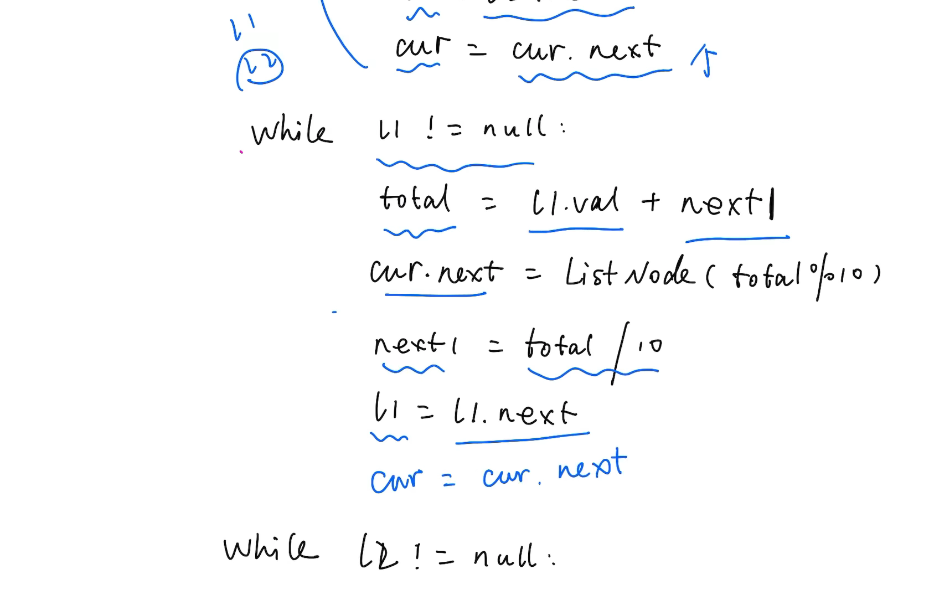 l1
l2
cur = cur. next
while l1 != null:
total = l1.val + next1
cur.next = ListNode(total%10)
next1 = total /10
l1 = l1.next
cur = cur. next
while l2 != null: